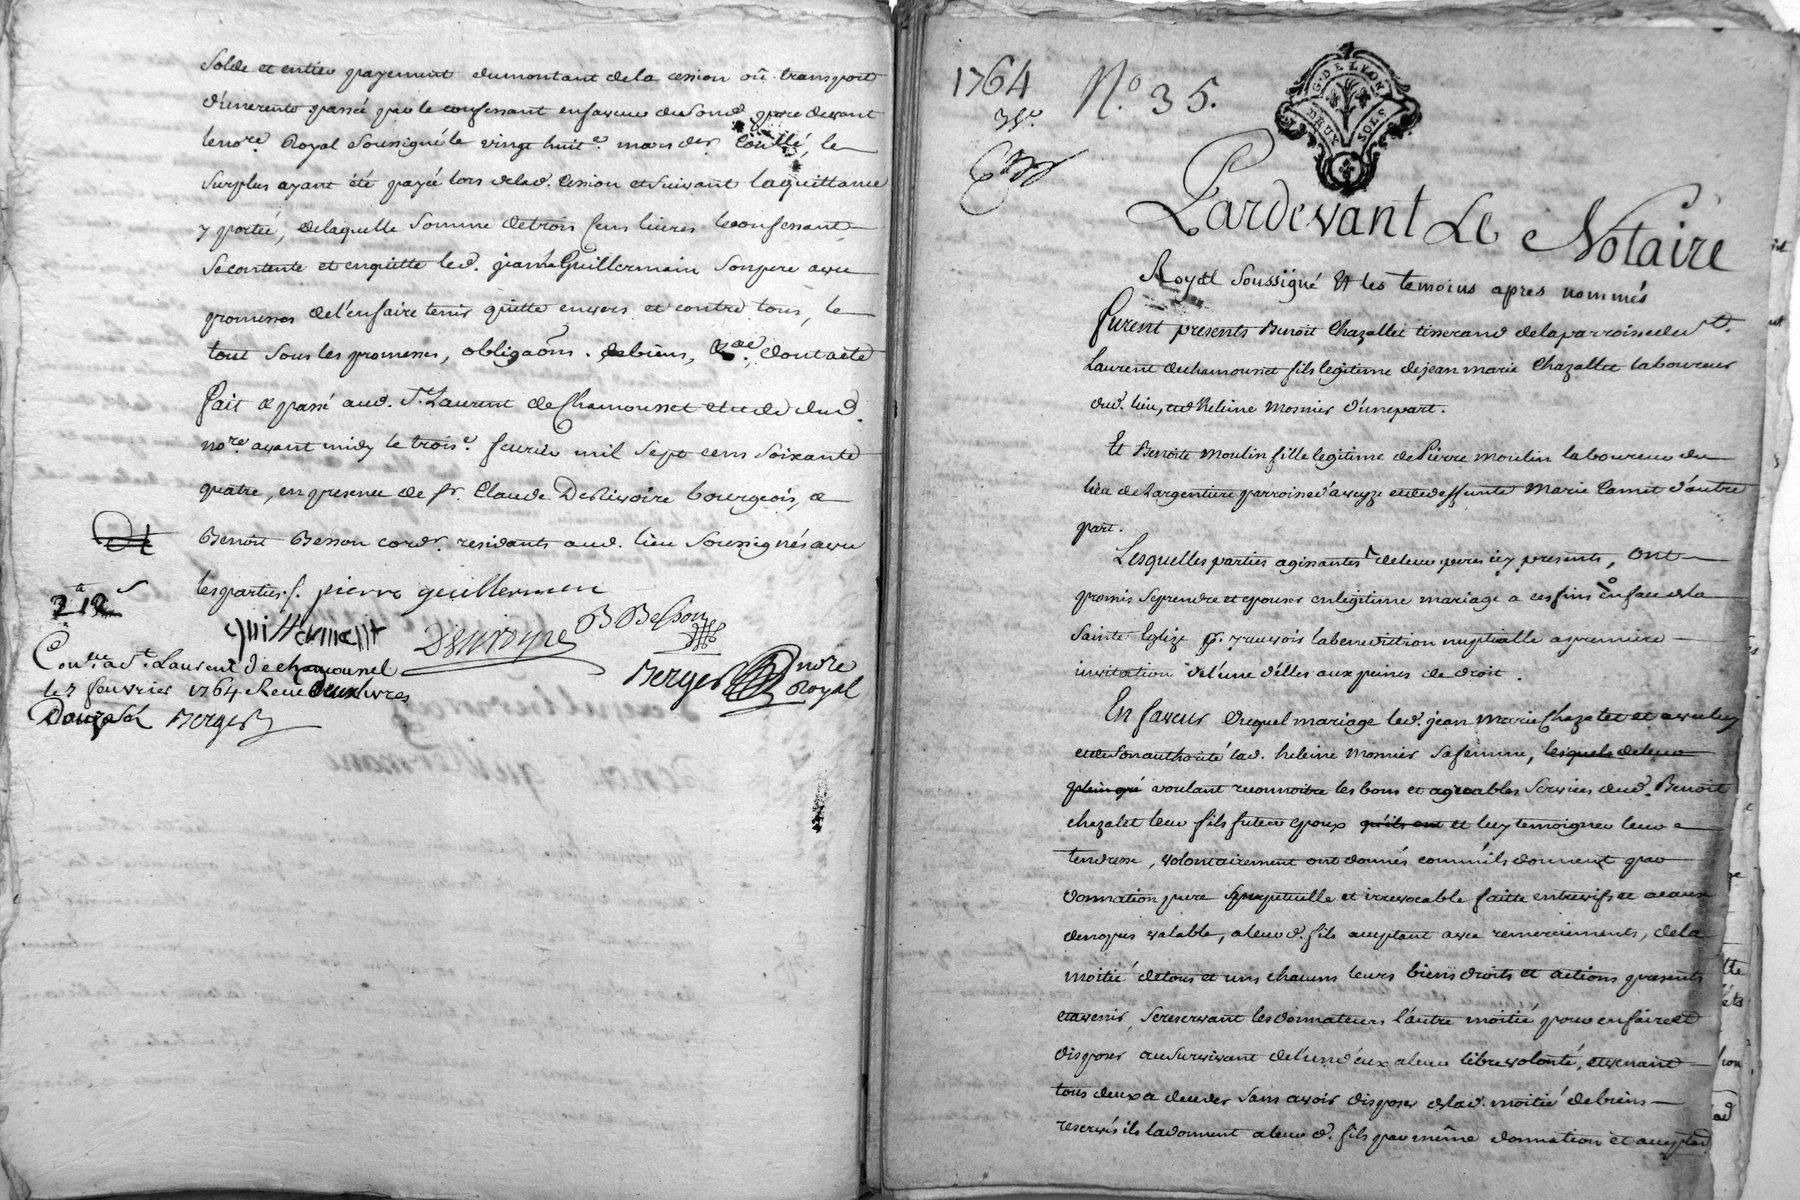 Solde et entier payement du montant de la cession ou transport
d'une rente passé par le confessant en faveur du sond. pere devant
le no.re Royal Soussigné le vingt huit e. mars der. le
Surplus ayant été payé lors de lad. Cession et suivant la quittance
y portée, de laquelle Somme de trois Cens livres le confessant
se contente et en quitte led. Guillermain Son pere avec
promesses de l'en faire tenir quitte envers et contre tous, le
tout Sous les promesses, obligaons. de biens, dont acte
fait & passé aud. St. Laurent de Chamousset etude dud.
no.re avant midy le trois e. fevrier mil Sept cens Soixante
quatre, en presence de Sr. Claude Desrivoire bourgeois, &
Benoit Besson cord.r residants aud. lieu Soussignés avec
les parties ./. pierre guillermen
guillerment Desrivoyre B Besson
Con.lé a St. Laurent de chamousset
le 7 fevrier 1764 Receu deux livres
Douze sols Berger
Berger no.re Royal
1764 N.o 35.
G. DE LYON
DEUX SOLS
Pardevant Le Notaire
Royal Soussigné & les temoins apres nommés
furent presents Benoit Chazallet tisserand de la parroisse de St.
Laurent de chamousset fils legitime de jean marie Chazallet laboureur
dud. lieu, et d'heleine Monier d'une part.
Et Benoite Moulin fille legitime de Pierre moulin laboureur du
lieu de Largentiere parroisse d'aveyze et de deffunte Marie Camet d'autre
part.
Lesquelles parties agissantes de leurs peres icy presents, ont
promis Se prendre et epouser en legitime mariage a ces fins en face de la
Sainte Eglize p. y recevoir la benediction nuptialle a premiere
invitation de l'une d'elles aux peines de droit.
En faveur duquel mariage led. jean Marie Chazalet et avec luy
et de Son authorité lad. heleine Monier sa femme, lesquels de leur
plein gré voulant reconnoitre les bons et agreables Services dud. Benoit
chazalet leur fils futeur epoux qu'ils ont et luy temoigner leur
tendresse, volontairement ont donnés comm'ils donnent par
donnation pure perpetuelle et irrevocable faitte entrevifs et a cause
de nopces valable, a leurd. fils acceptant avec remerciements, de la
moitié de tous et uns chacuns leurs biens droits et actions presents
et avenir, Se reservant les donnateurs l'autre moitié pour en faire et
disposer au Survivant de l'un d'eux a leur libre volonté, et venant
tous deux a deceder Sans avoir disposer de lad. moitié de biens
reservés ils la donnent a leurd. fils par même donnation et acceptaon